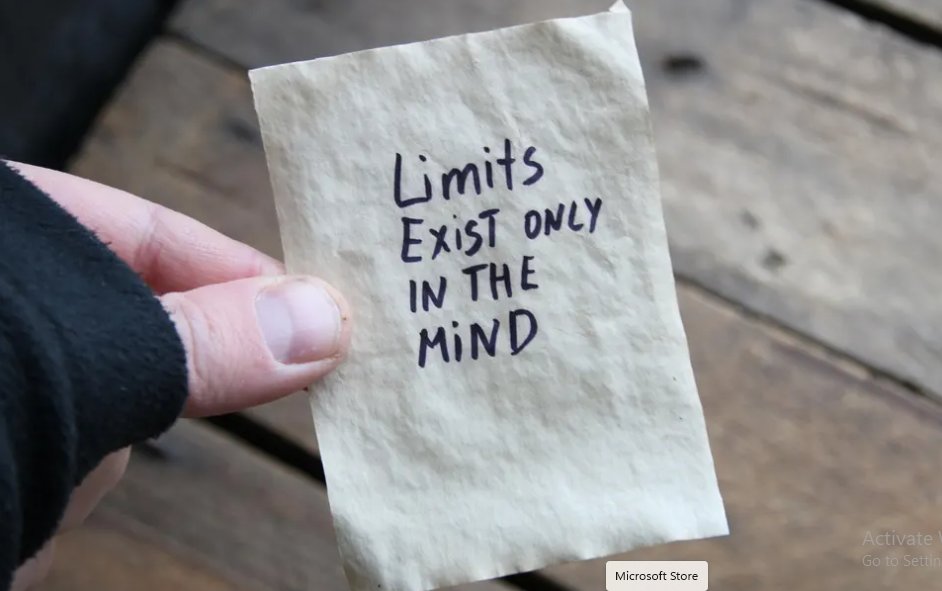 Limits
EXiST ONLY
IN THE
MiND
Activate
Go to Settin
Microsoft Store